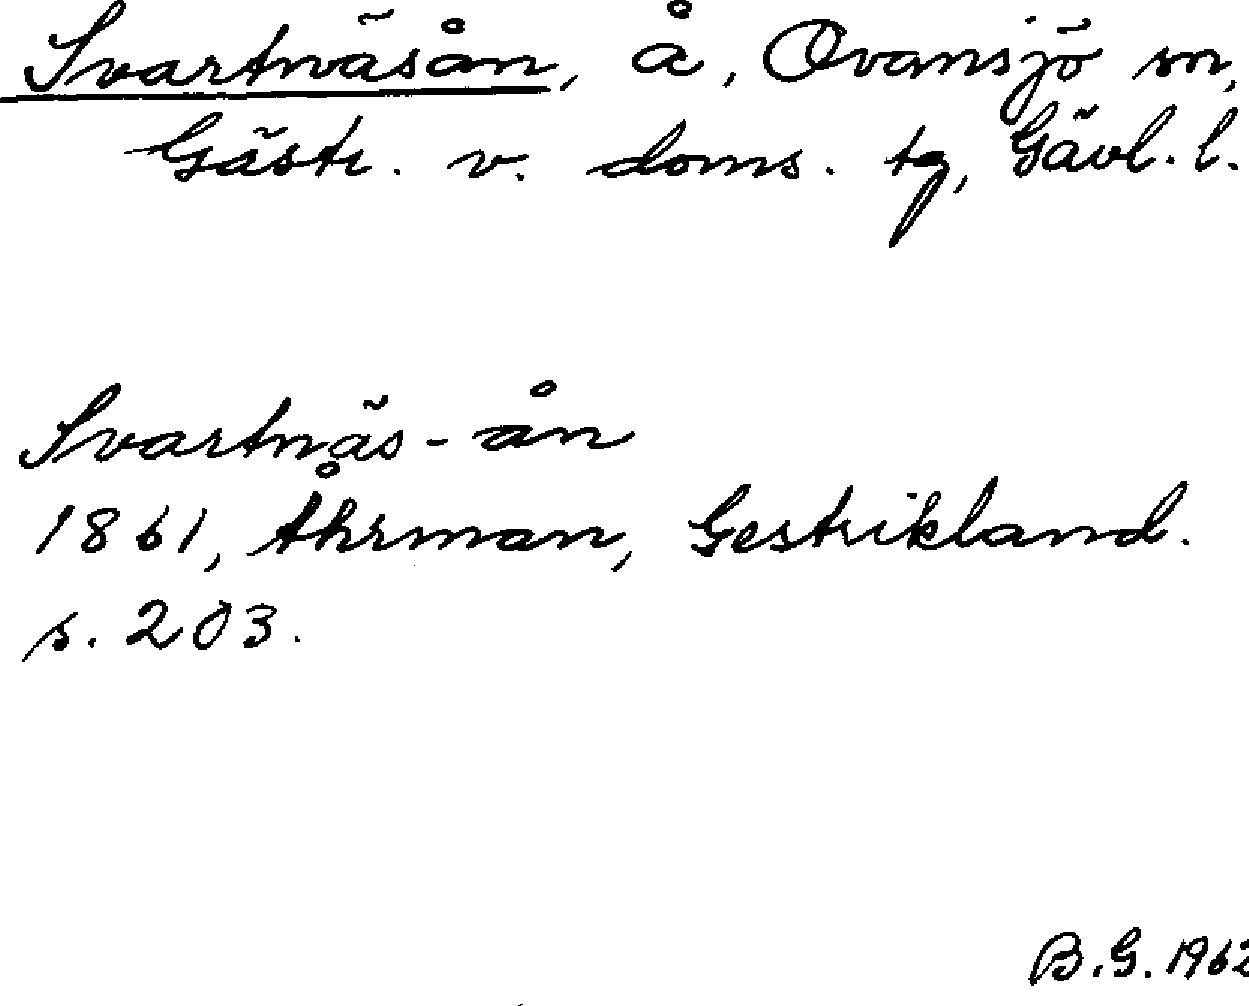 Svartnäsån, å, Ovansjö sn,
Gästr. v. doms. tg, Gävl. l.
Svartnäs-ån
1861, Åhrman, Gestrikland.
s. 203.
B.G. 1962